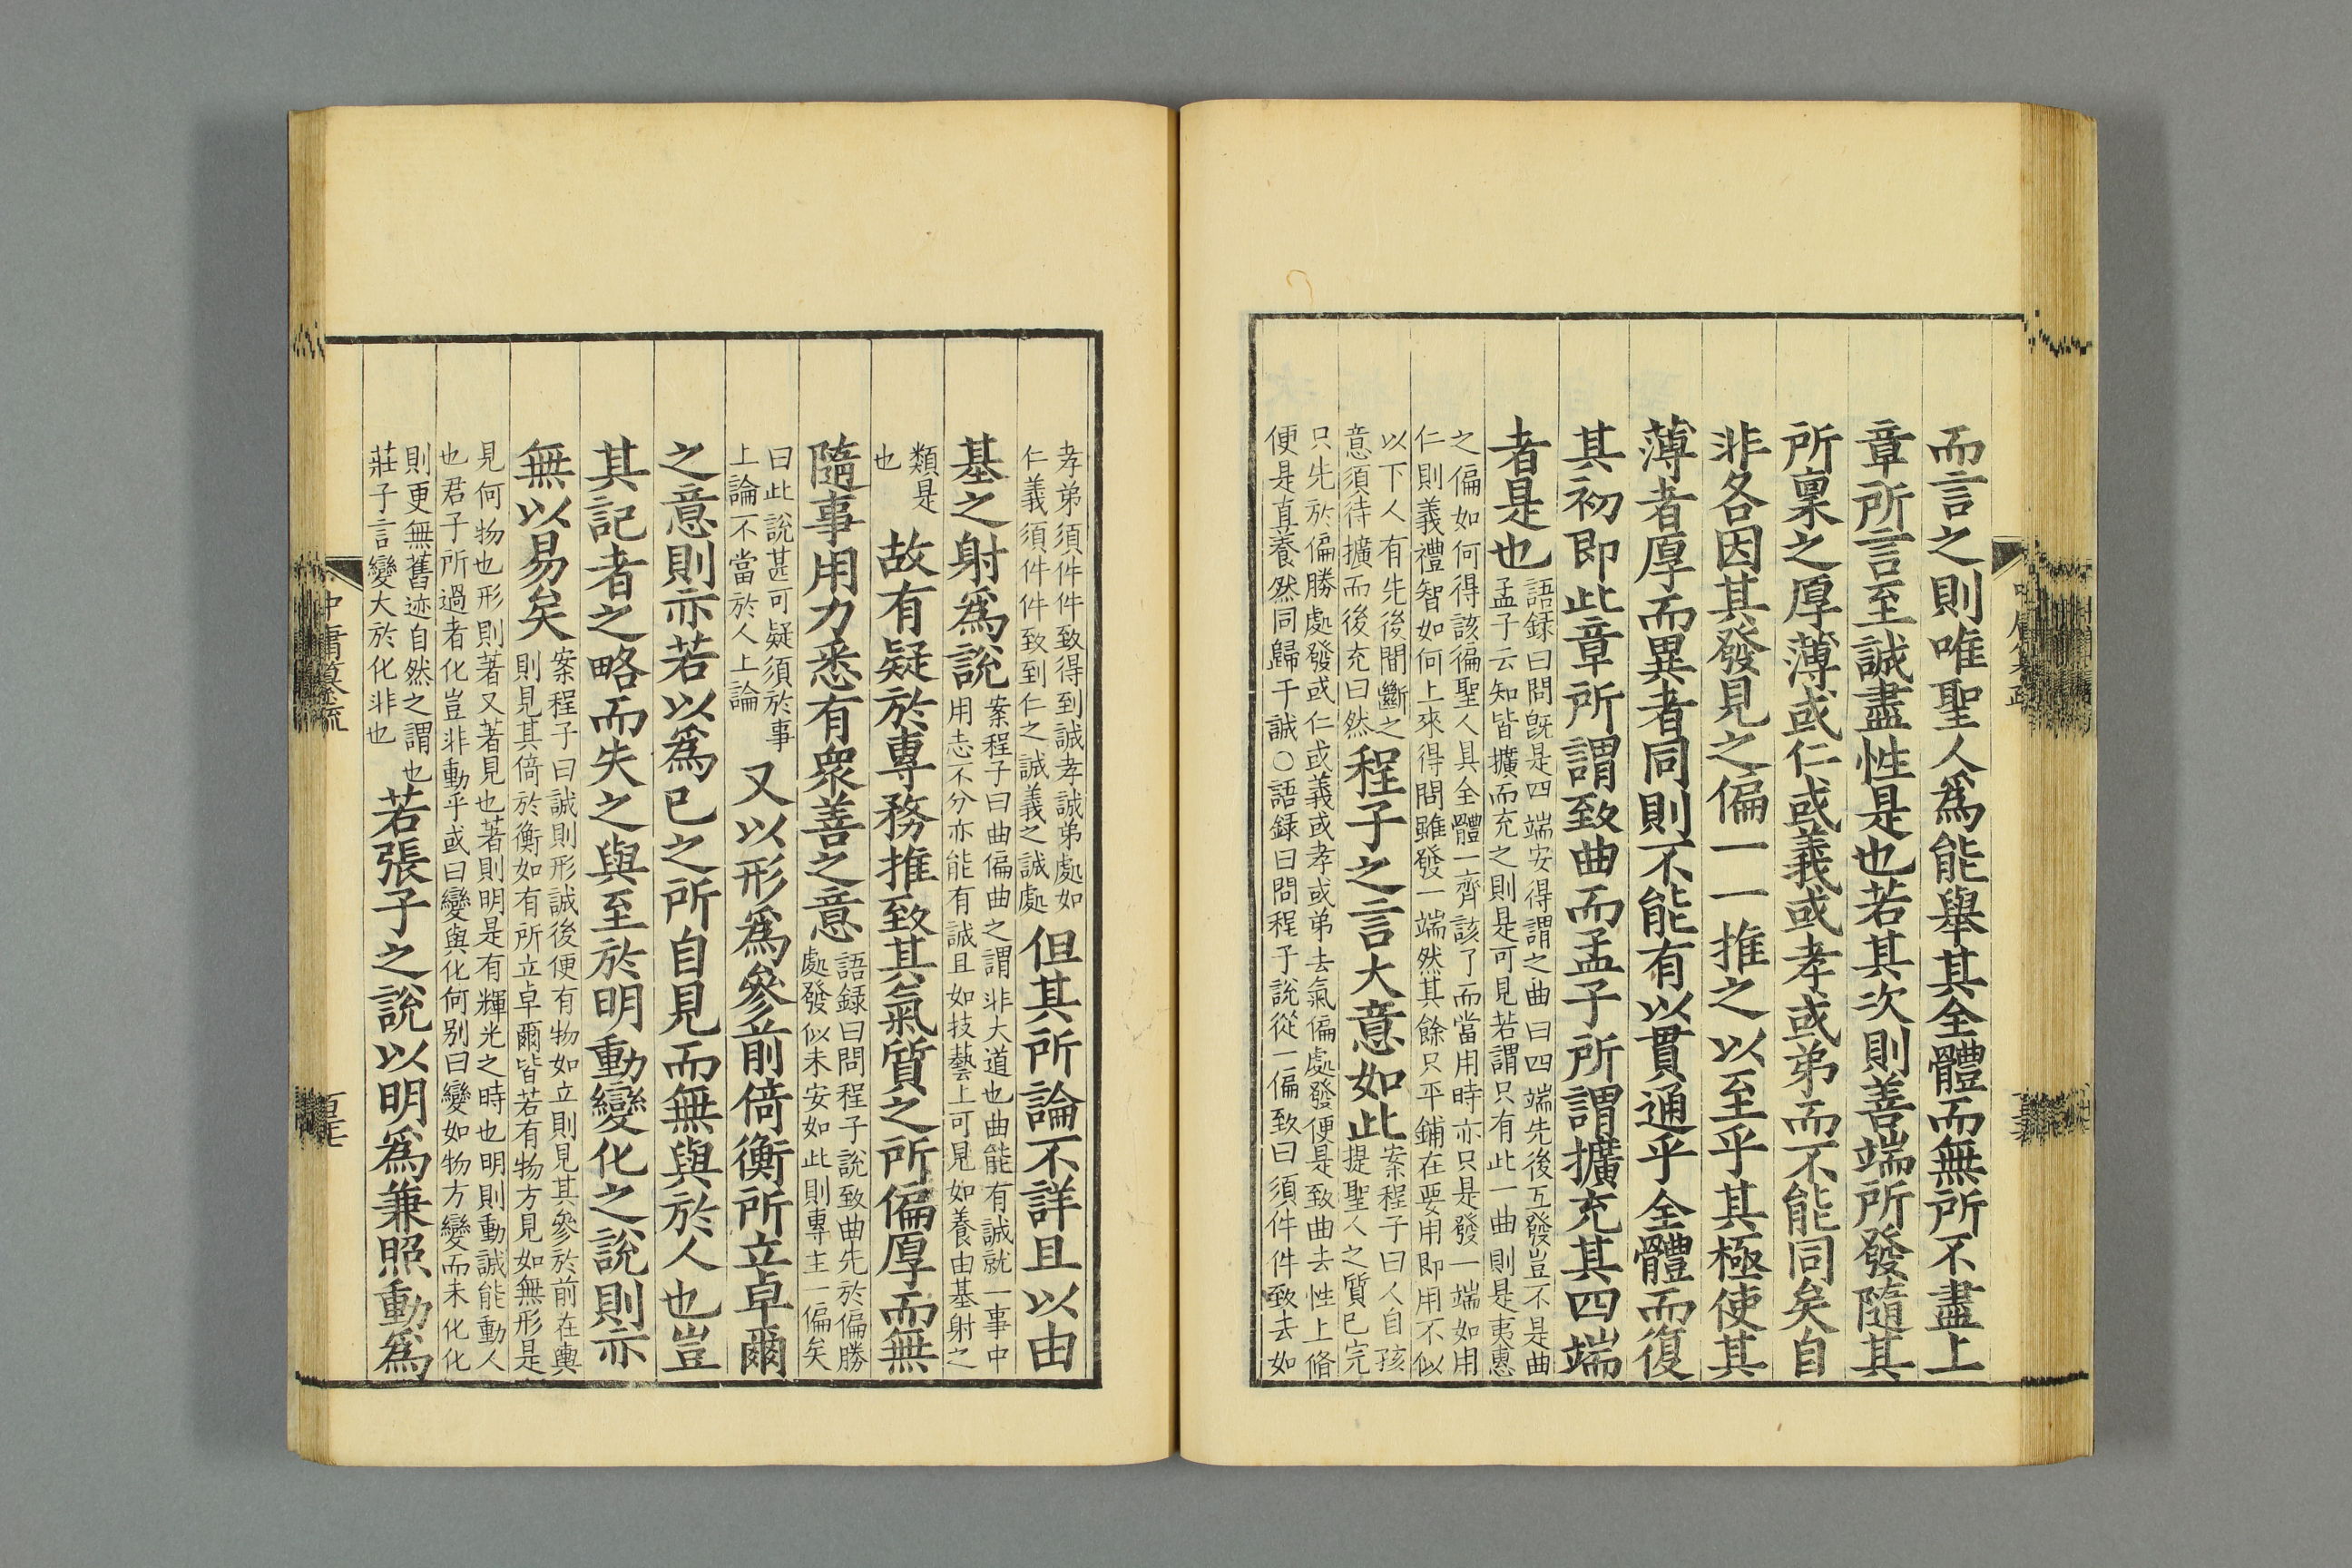 而言之則唯聖人爲能舉其全體而無所不盡上
章所言至誠盡性是也若其次則善端所發隨其
所稟之厚薄或仁或義或孝或弟而不能同矣自
非各因其發見之偏一一推之以至乎其極使其
薄者厚而異者同則不能有以貫通乎全體而復
其初即此章所謂致曲而孟子所謂擴充其四端
者是也
語録曰問旣是四端安得謂之曲曰四端先後互發豈不是曲
孟子云知皆擴而充之則是可見若謂只有此一曲則是夷惠
之偏如何得該徧聖人具全體一齊該了而當用時亦只是發一端如用
仁則義禮智如何上來得問雖發一端然其餘只平鋪在要用即用不似
以下人有先後間斷之
意須待擴而後充曰然
程子之言大意如此
案程子曰人自孩
提聖人之質已完
只先於偏勝處發或仁或義或孝或弟去氣偏處發便是致曲去性上脩
便是直養然同歸于誠○語録曰問程子說從一偏致曰須件件致去如
孝弟須件件致得到誠孝誠弟處如
仁義須件件致到仁之誠義之誠處
但其所論不詳且以由
基之射爲說
案程子曰曲偏曲之謂非大道也曲能有誠就一事中
用志不分亦能有誠且如技藝上可見如養由基射之
類是
也
故有疑於專務推致其氣質之所偏厚而無
隨事用力悉有衆善之意
語録曰問程子說致曲先於偏勝
處發似未安如此則專主一偏矣
曰此說甚可疑須於事
上論不當於人上論
又以形爲參前倚衡所立卓爾
之意則亦若以爲已之所自見而無與於人也豈
其記者之略而失之與至於明動變化之說則亦
無以易矣
案程子曰誠則形誠後便有物如立則見其參於前在輿
則見其倚於衡如有所立卓爾皆若有物方見如無形是
見何物也形則著又著見也著則明是有輝光之時也明則動誠能動人
也君子所過者化豈非動乎或曰變與化何别曰變如物方變而未化化
則更無舊迹自然之謂也
莊子言變大於化非也
若張子之說以明爲兼照動爲
中庸纂疏
百七